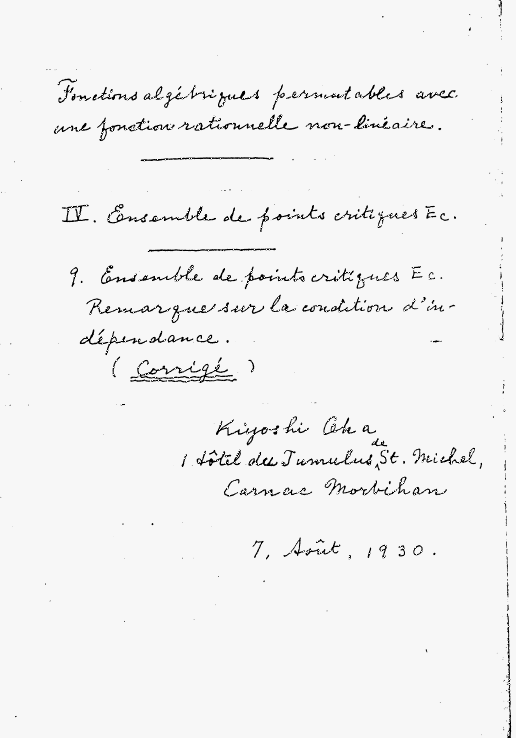 Fonctions algébriques permutables avec
une fonction rationnelle non-linéaire.
IV. Ensemble de points critiques Ec.
9. Ensemble de points critiques Ec.
Remarque sur la condition d'in-
dépendance.
( Corrigé )
Kiyoshi Oka
Hôtel du Tumulus de St. Michel,
Carnac Morbihan
7, Août, 1930.